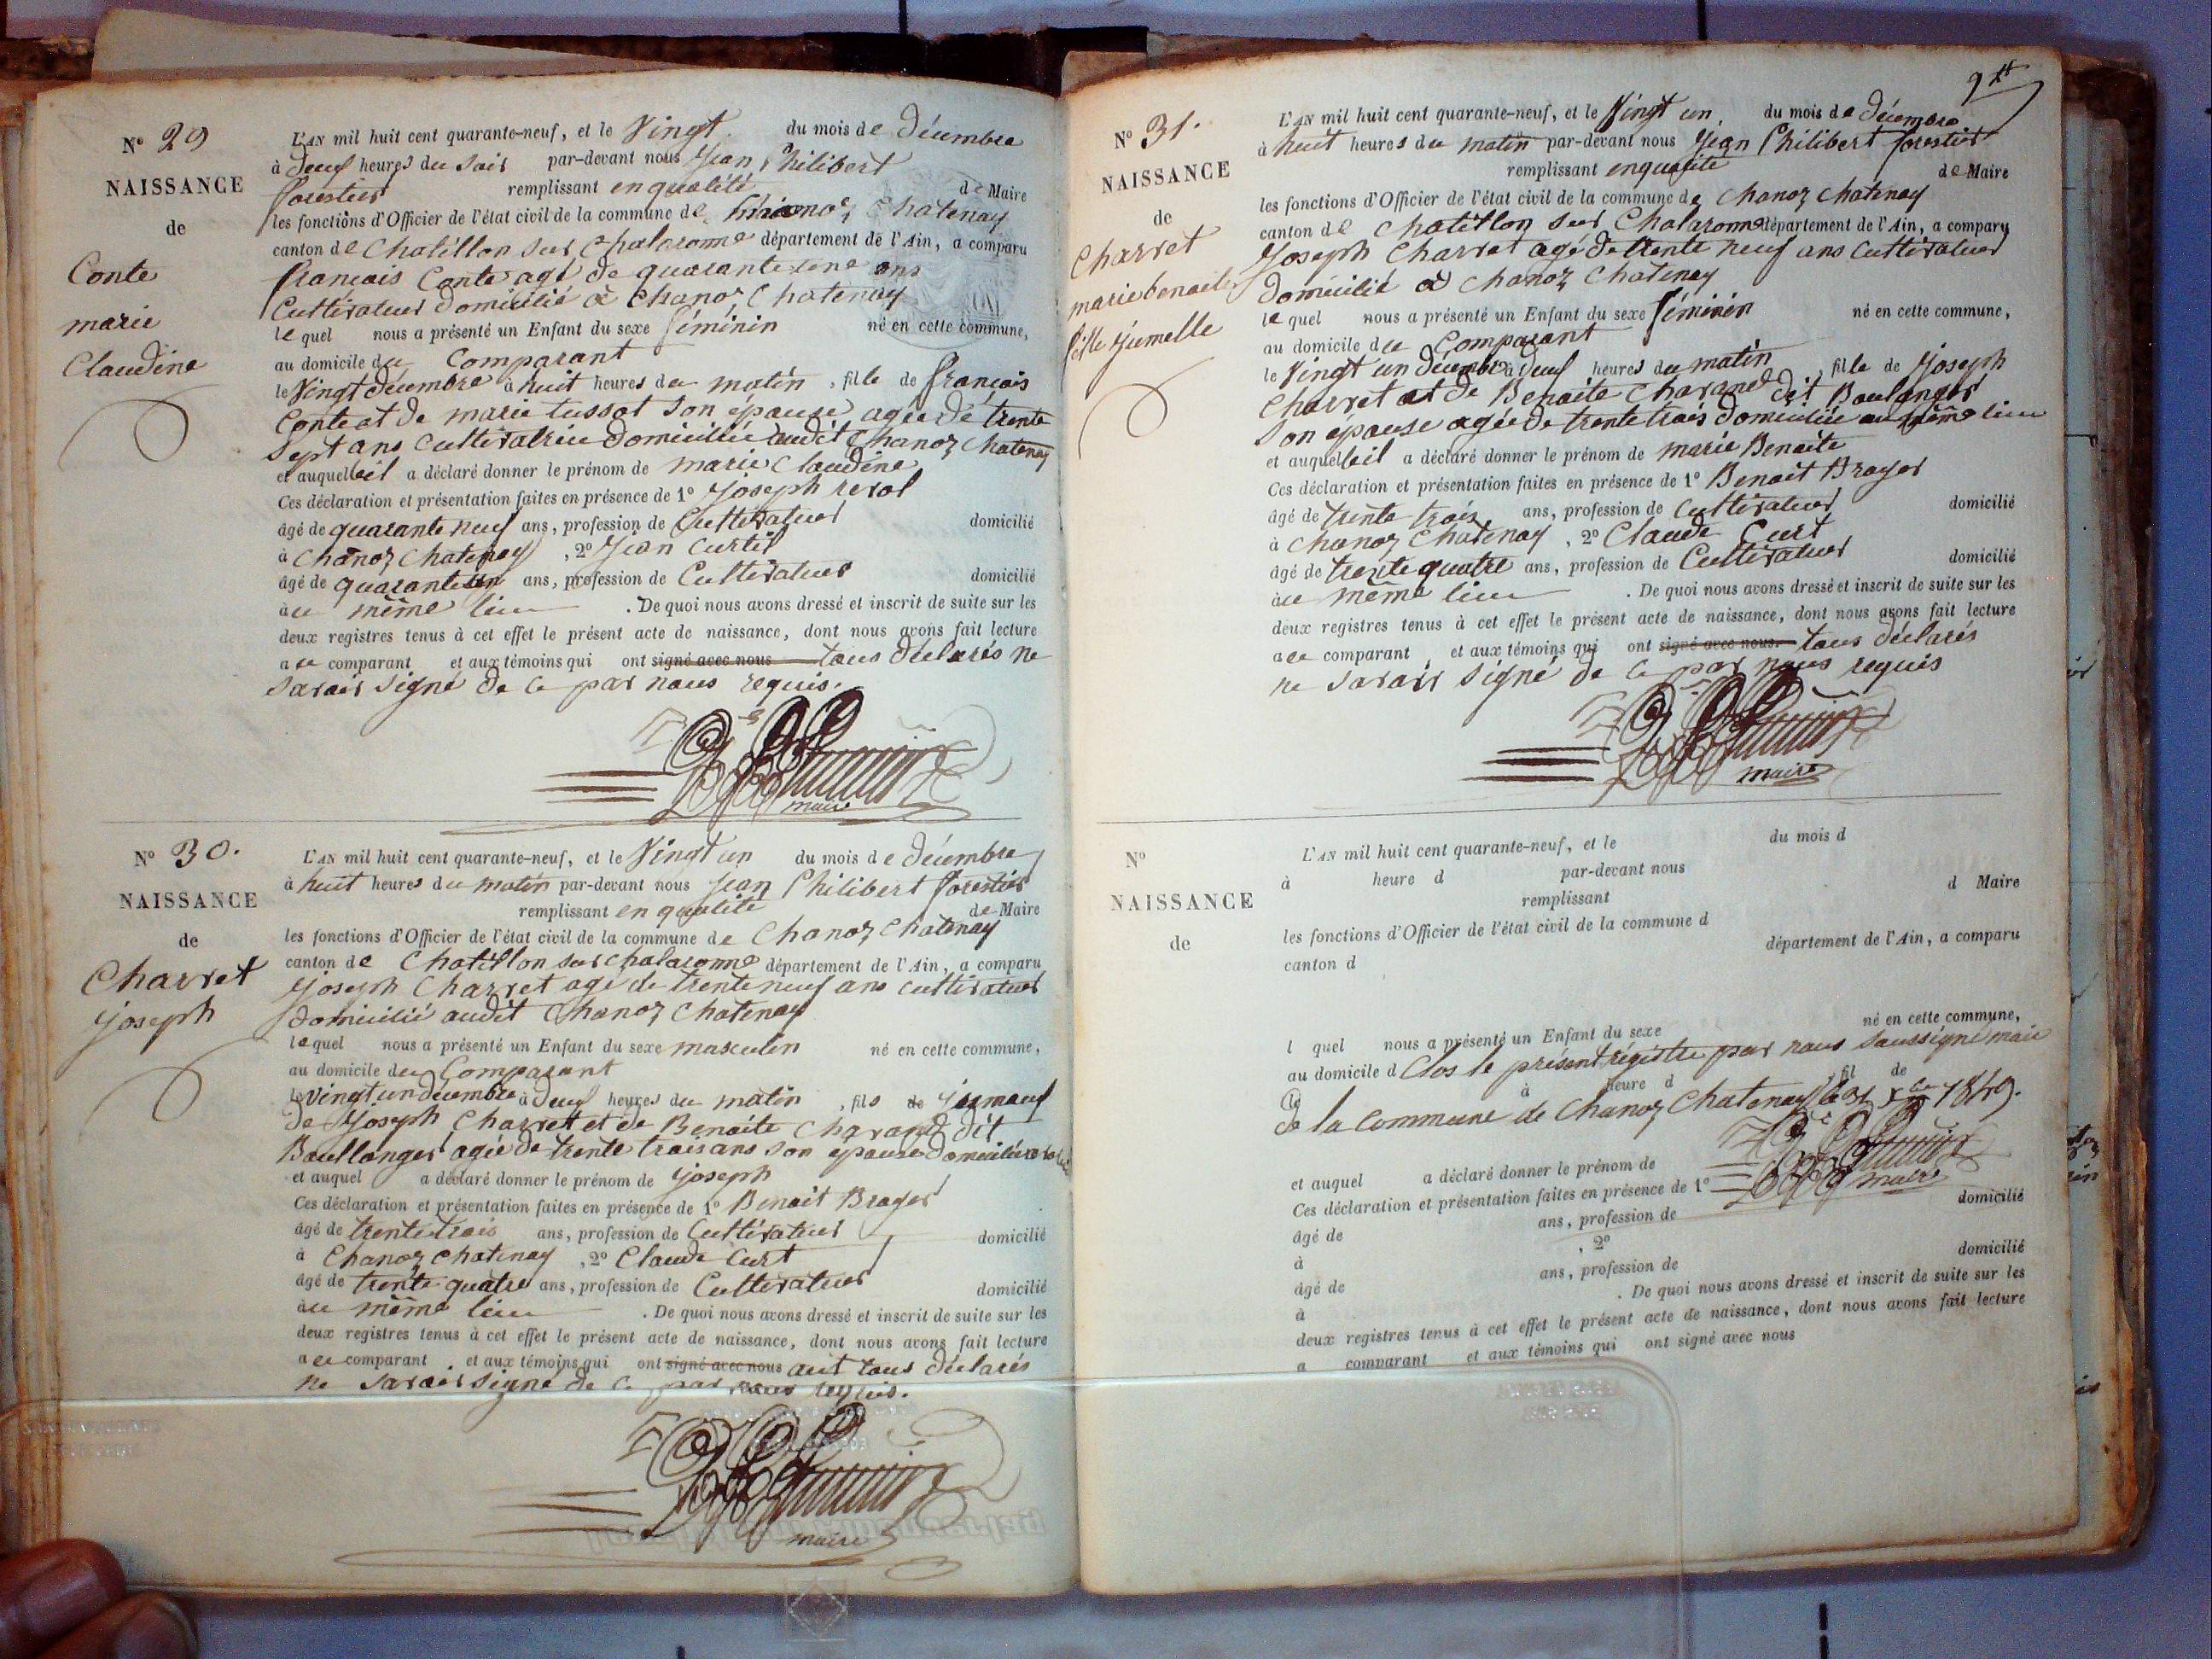 N° 29
NAISSANCE
de
Conte
marie
Claudine
L'AN mil huit cent quarante-neuf, et le Vingt du mois de décembre
à deux heures du soir par-devant nous Jean Philibert
forestier remplissant en qualité de Maire
les fonctions d'Officier de l'état civil de la commune de Chanoz Chatenay
canton de Chatillon sur Chalaronne département de l'Ain, a comparu
francais Conte agé de quarante un ans
Cultivateur domicilié à Chanoz Chatenay
lequel nous a présenté un Enfant du sexe féminin né en cette commune,
au domicile du Comparant
le Vingt décembre à huit heures du matin, fille de francais
Conte et de marie tussot son épouse agée de trente
sept ans cultivatrice domiciliée audit Chanoz Chatenay
et auquel il a déclaré donner le prénom de marie Claudine
Ces déclaration et présentation faites en présence de 1° Joseph revol
âgé de quarante neuf ans, profession de Cultivateur domicilié
à Chanoz Chatenay, 2° Jean Curtil
âgé de quarante un ans, profession de Cultivateur domicilié
au même lieu. De quoi nous avons dressé et inscrit de suite sur les
deux registres tenus à cet effet le présent acte de naissance, dont nous avons fait lecture
au comparant et aux témoins qui ont signé avec nous tous déclarés ne
savoir signé de ce par nous requis.
maire
N° 30.
NAISSANCE
de
Charret
joseph
L'AN mil huit cent quarante-neuf, et le Vingt un du mois de décembre
à huit heures du matin par-devant nous Jean Philibert forestier
remplissant en qualité de Maire
les fonctions d'Officier de l'état civil de la commune de Chanoz Chatenay
canton de Chatillon sur chalaronne département de l'Ain, a comparu
Joseph Charret agé de trente neuf ans cultivateur
domicilié audit Chanoz Chatenay
lequel nous a présenté un Enfant du sexe masculin né en cette commune,
au domicile du Comparant
le vingt un décembre à deux heures du matin, fils de
de Joseph Charret et de Benoite Charand dit
Boullanger agée de trente trois ans son épouse domiciliée
et auquel a déclaré donner le prénom de joseph
Ces déclaration et présentation faites en présence de 1° Benoit Brager
âgé de trente trois ans, profession de Cultivateur domicilié
à Chanoz Chatenay, 2° Claude Curt
âgé de trente quatre ans, profession de Cultivateur domicilié
au même lieu. De quoi nous avons dressé et inscrit de suite sur les
deux registres tenus à cet effet le présent acte de naissance, dont nous avons fait lecture
au comparant et aux témoins qui ont signé avec nous ont tous déclarés
ne savoir signé de ce par nous requis.
maire
N° 31.
NAISSANCE
de
Charret
marie benoite
fille jumelle
L'AN mil huit cent quarante-neuf, et le Vingt un du mois de décembre
à huit heures du matin par-devant nous Jean Philibert forestier
remplissant en qualité de Maire
les fonctions d'Officier de l'état civil de la commune de Chanoz Chatenay
canton de Chatillon sur Chalaronne département de l'Ain, a comparu
Joseph Charret agé de trente neuf ans cultivateur
domicilié à Chanoz Chatenay
lequel nous a présenté un Enfant du sexe féminin né en cette commune,
au domicile du Comparant
le Vingt un décembre à deux heures du matin, fille de Joseph
Charret et de Benoite Charand dit Boulanger
son epouse agée de trente trois domiciliée au même lieu
et auquel il a déclaré donner le prénom de marie Benoite
Ces déclaration et présentation faites en présence de 1° Benoit Brager
âgé de trente trois ans, profession de Cultivateur domicilié
à Chanoz Chatenay, 2° Claude Curt
âgé de trente quatre ans, profession de Cultivateur domicilié
au même lieu. De quoi nous avons dressé et inscrit de suite sur les
deux registres tenus à cet effet le présent acte de naissance, dont nous avons fait lecture
au comparant et aux témoins qui ont signé avec nous. tous déclarés
ne savoir signé de ce par nous requis
maire
N°
NAISSANCE
de
L'AN mil huit cent quarante-neuf, et le du mois d
à heure d par-devant nous
remplissant d Maire
les fonctions d'Officier de l'état civil de la commune d
canton d département de l'Ain, a comparu
l quel nous a présenté un Enfant du sexe né en cette commune,
au domicile d Clos le présent régistre par nous soussigné maire
le à heure d, fil de
de la Commune de Chanoz Chatenay le 31 Xbre 1849.
maire
et auquel a déclaré donner le prénom de
Ces déclaration et présentation faites en présence de 1°
âgé de ans, profession de domicilié
à, 2°
âgé de ans, profession de domicilié
à. De quoi nous avons dressé et inscrit de suite sur les
deux registres tenus à cet effet le présent acte de naissance, dont nous avons fait lecture
a comparant et aux témoins qui ont signé avec nous